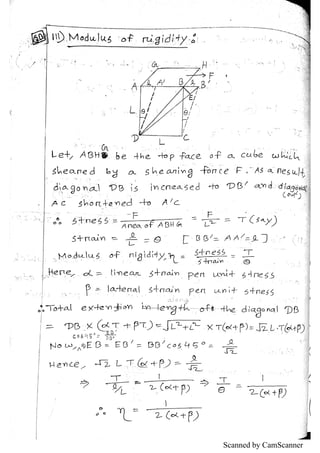 III) Modulus of rigidity :
G H
A A' B B' F
E
L θ θ
D L C
Let, ABHG be the top face of a cube which
sheared by a shearing force F. As a result
diagonal DB is increased to DB' and diagonal
AC shortened to A'C
∴ stress = F / Area of ABHG = F / L² = T (say)
strain = l / L = θ [BB' = AA' = l]
∴ Modulus of rigidity, η = stress / strain = T / θ
Here, α = linear strain per unit stress
β = lateral strain per unit stress
∴ Total extension in length of the diagonal DB
= DB × (αT + βT) = √L²+L² × T(α+β) = √2 L·T(α+β)
cos 45° =
Now, EB' = BB' cos 45° = l / √2
Hence, √2 L T (α+β) = l / √2
⇒ T / l/L = 1 / 2(α+β) ⇒ T / θ = 1 / 2(α+β)
∴ η = 1 / 2(α+β)
Scanned by CamScanner